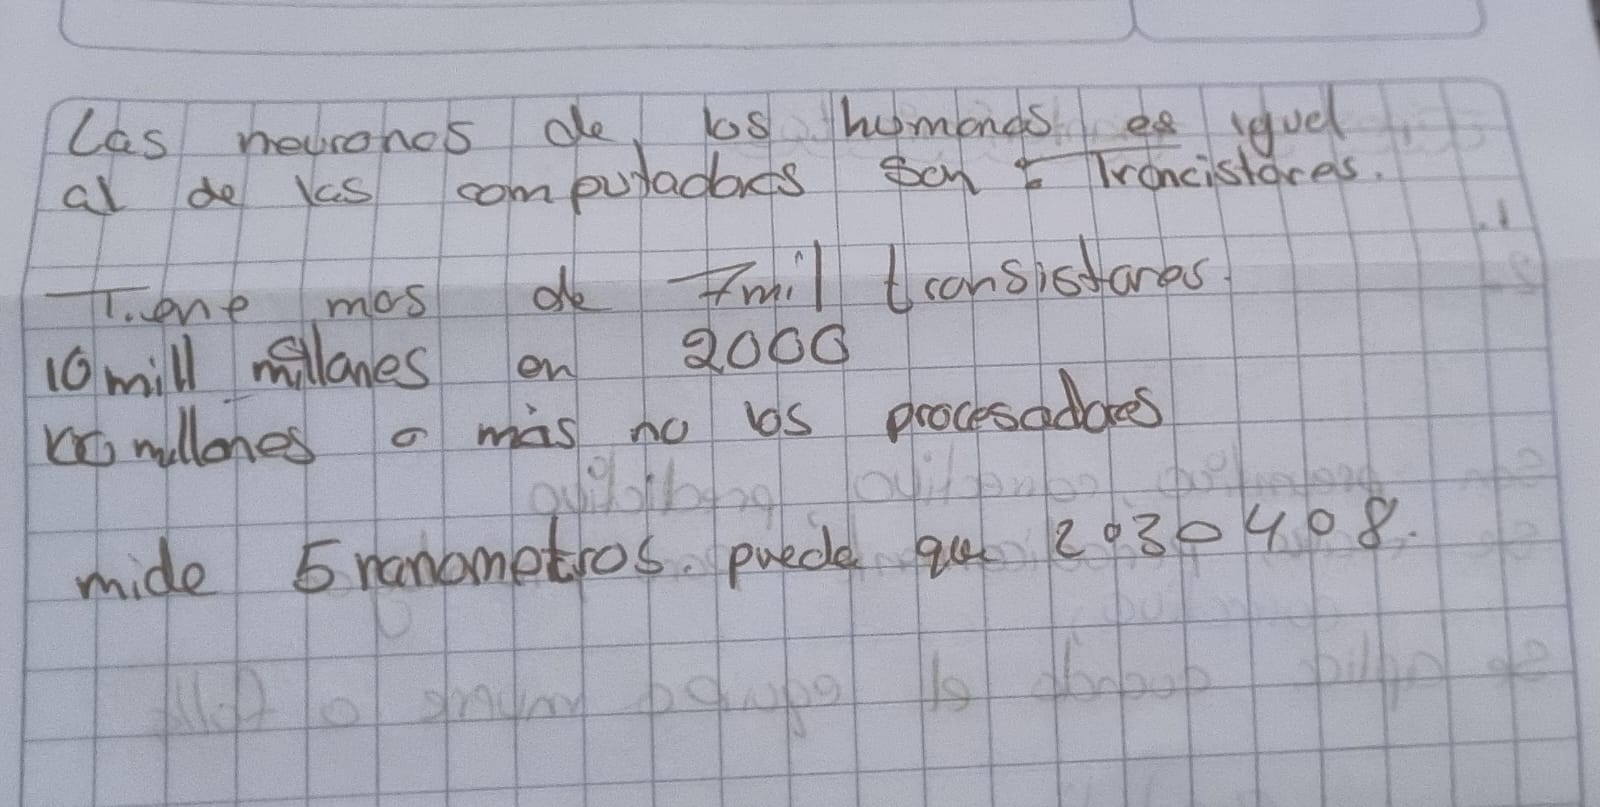 Las neuronas de los humanos es igual
al de las computadoras son : Trancistores.
Tiene mas de 7mil transistores
10 mill millones en 2000
millones o más no los procesadores
mide 5 nanometros. puede que 2 o 3 o 4 o 8.